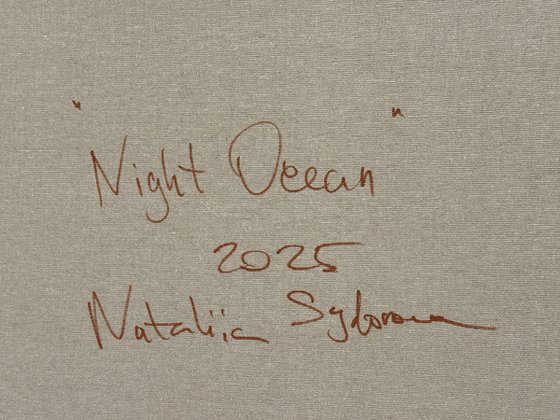 "Night Ocean"
2025
Nataliia Sydorova